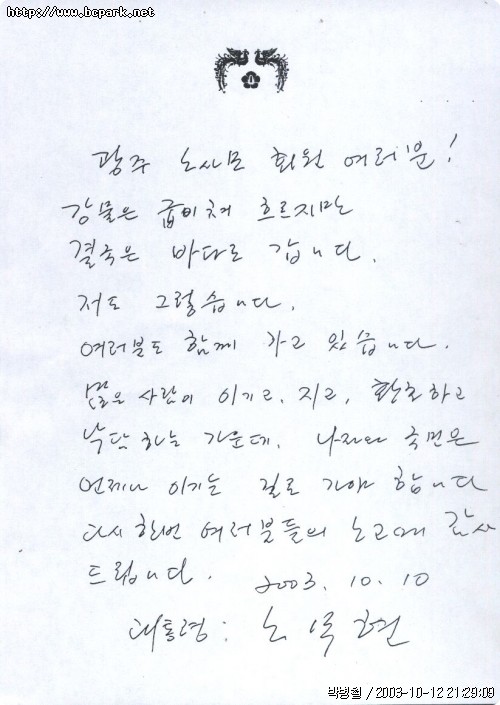 http://www.bcpark.net
광주 노사모 회원 여러분!
강물은 굽이쳐 흐르지만
결국은 바다로 갑니다.
저도 그렇습니다.
여러분도 함께 가고 있습니다.
많은 사람이 이기고, 지고, 환호하고
낙담하는 가운데, 나라와 국민은
언제나 이기는 길로 가야 합니다
다시 한번 여러분들의 노고에 감사
드립니다. 2003. 10. 10
대통령: 노무현
박병철 / 2003-10-12 21:29:09